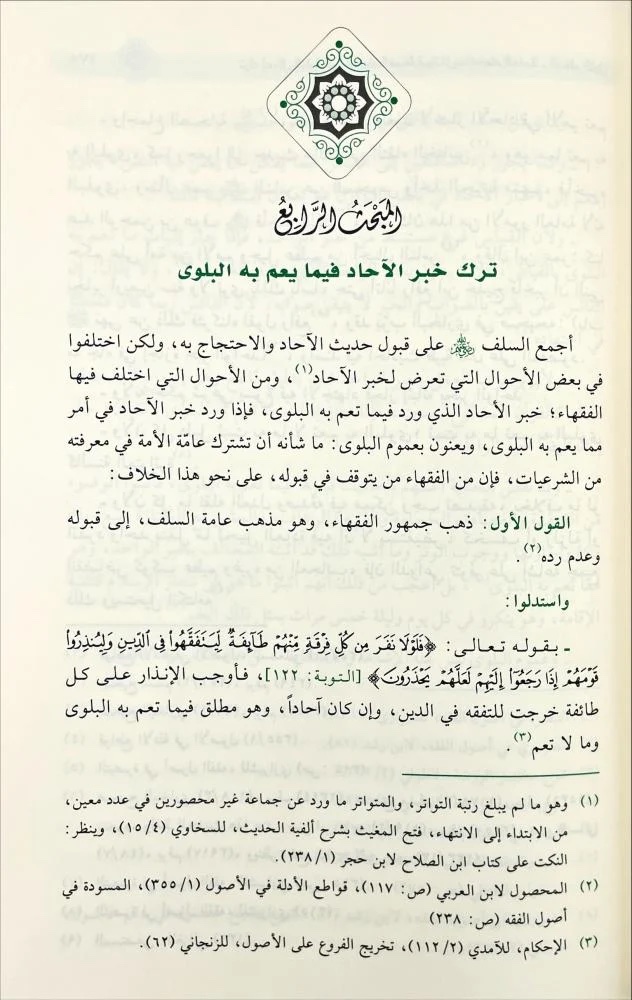 المبحث الرابع
ترك خبر الآحاد فيما يعم به البلوى
أجمع السلف ﷺ على قبول حديث الآحاد والاحتجاج به، ولكن اختلفوا
في بعض الأحوال التي تعرض لخبر الآحاد(١)، ومن الأحوال التي اختلف فيها
الفقهاء؛ خبر الآحاد الذي ورد فيما تعم به البلوى، فإذا ورد خبر الآحاد في أمر
مما يعم به البلوى، ويعنون بعموم البلوى: ما شأنه أن تشترك عامّة الأمة في معرفته
من الشرعيات، فإن من الفقهاء من يتوقف في قبوله، على نحو هذا الخلاف:
القول الأول: ذهب جمهور الفقهاء، وهو مذهب عامة السلف، إلى قبوله
وعدم رده(٢).
واستدلوا:
ـ بقوله تعالى: ﴿فَلَوْلَا نَفَرَ مِن كُلِّ فِرْقَةٍ مِّنْهُمْ طَآئِفَةٌ لِّيَتَفَقَّهُوا۟ فِى ٱلدِّينِ وَلِيُنذِرُوا۟
قَوْمَهُمْ إِذَا رَجَعُوٓا۟ إِلَيْهِمْ لَعَلَّهُمْ يَحْذَرُونَ﴾ [التوبة: ١٢٢]، فأوجب الإنذار على كل
طائفة خرجت للتفقه في الدين، وإن كان آحاداً، وهو مطلق فيما تعم به البلوى
وما لا تعم(٣).
(١) وهو ما لم يبلغ رتبة التواتر، والمتواتر ما ورد عن جماعة غير محصورين في عدد معين،
من الابتداء إلى الانتهاء، فتح المغيث بشرح ألفية الحديث، للسخاوي (١٥/٤)، وينظر:
النكت على كتاب ابن الصلاح لابن حجر (٢٣٨/١).
(٢) المحصول لابن العربي (ص: ١١٧)، قواطع الأدلة في الأصول (٣٥٥/١)، المسودة في
أصول الفقه (ص: ٢٣٨)
(٣) الإحكام، للآمدي (١١٢/٢)، تخريج الفروع على الأصول، للزنجاني (٦٢).